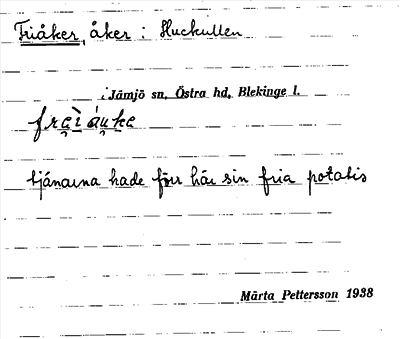 Friåker, åker i Huckullen
i Jämjö sn, Östra hd, Blekinge l.
frɛ̀i áu̯ke
tjänarna hade förr här sin fria potatis
Märta Pettersson 1938